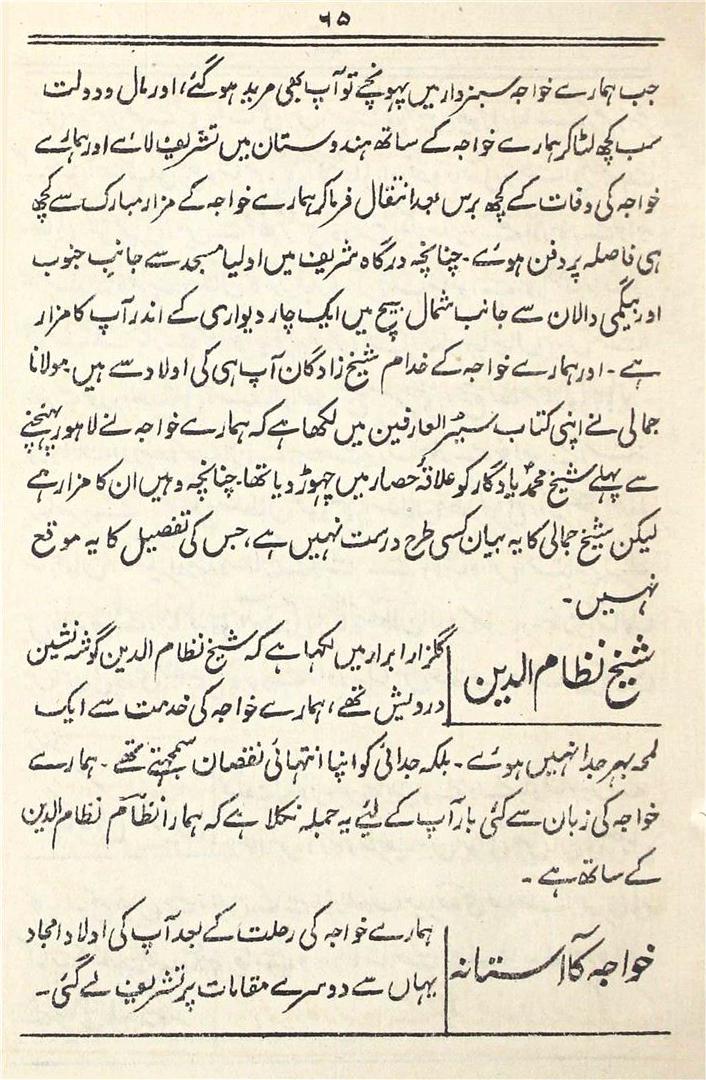 ۶۵
جب ہمارے خواجہ سبزوار میں پہونچے تو آپ بھی مرید ہو گئے، اور مال و دولت
سب کچھ لٹا کر ہمارے خواجہ کے ساتھ ہندوستان میں تشریف لائے اور ہمارے
خواجہ کی وفات کے کچھ برس بعد انتقال فرما کر ہمارے خواجہ کے مزار مبارک سے کچھ
ہی فاصلہ پر دفن ہوئے۔ چنانچہ درگاہ شریف میں اولیا مسجد سے جانب جنوب
اور بیگمی دالان سے جانب شمال بیچ میں ایک چار دیواری کے اندر آپ کا مزار
ہے۔ اور ہمارے خواجہ کے خدام شیخ زادگان آپ ہی کی اولاد سے ہیں۔ مولانا
جمالی نے اپنی کتاب سیر العارفین میں لکھا ہے کہ ہمارے خواجہ نے لاہور پہنچنے
سے پہلے شیخ محمد یادگار کو علاقہ حصار میں چھوڑ دیا تھا۔ چنانچہ وہیں ان کا مزار ہے
لیکن شیخ جمالی کا یہ بیان کسی طرح درست نہیں ہے، جس کی تفصیل کا یہ موقع
نہیں۔
شیخ نظام الدین
گلزار ابرار میں لکہا ہے کہ شیخ نظام الدین گوشہ نشین
درویش تھے، ہمارے خواجہ کی خدمت سے ایک
لمحہ بہر جدا نہیں ہوئے۔ بلکہ جدائی کو اپنا انتہائی نقصان سمجہتے تھے۔ ہمارے
خواجہ کی زبان سے کئی بار آپ کے لئے یہ جملہ نکلا ہے کہ ہمارا نظام نظام الدین
کے ساتھ ہے۔
خواجہ کا آستانہ
ہمارے خواجہ کی رحلت کے بعد آپ کی اولاد امجاد
یہاں سے دوسرے مقامات پر تشریف لے گئی۔